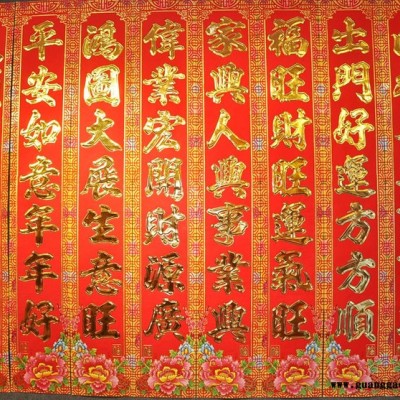 出門好運方方順
福旺財旺運氣旺
家興人興事業興
偉業宏開財源廣
鴻圖大展生意旺
平安如意年年好